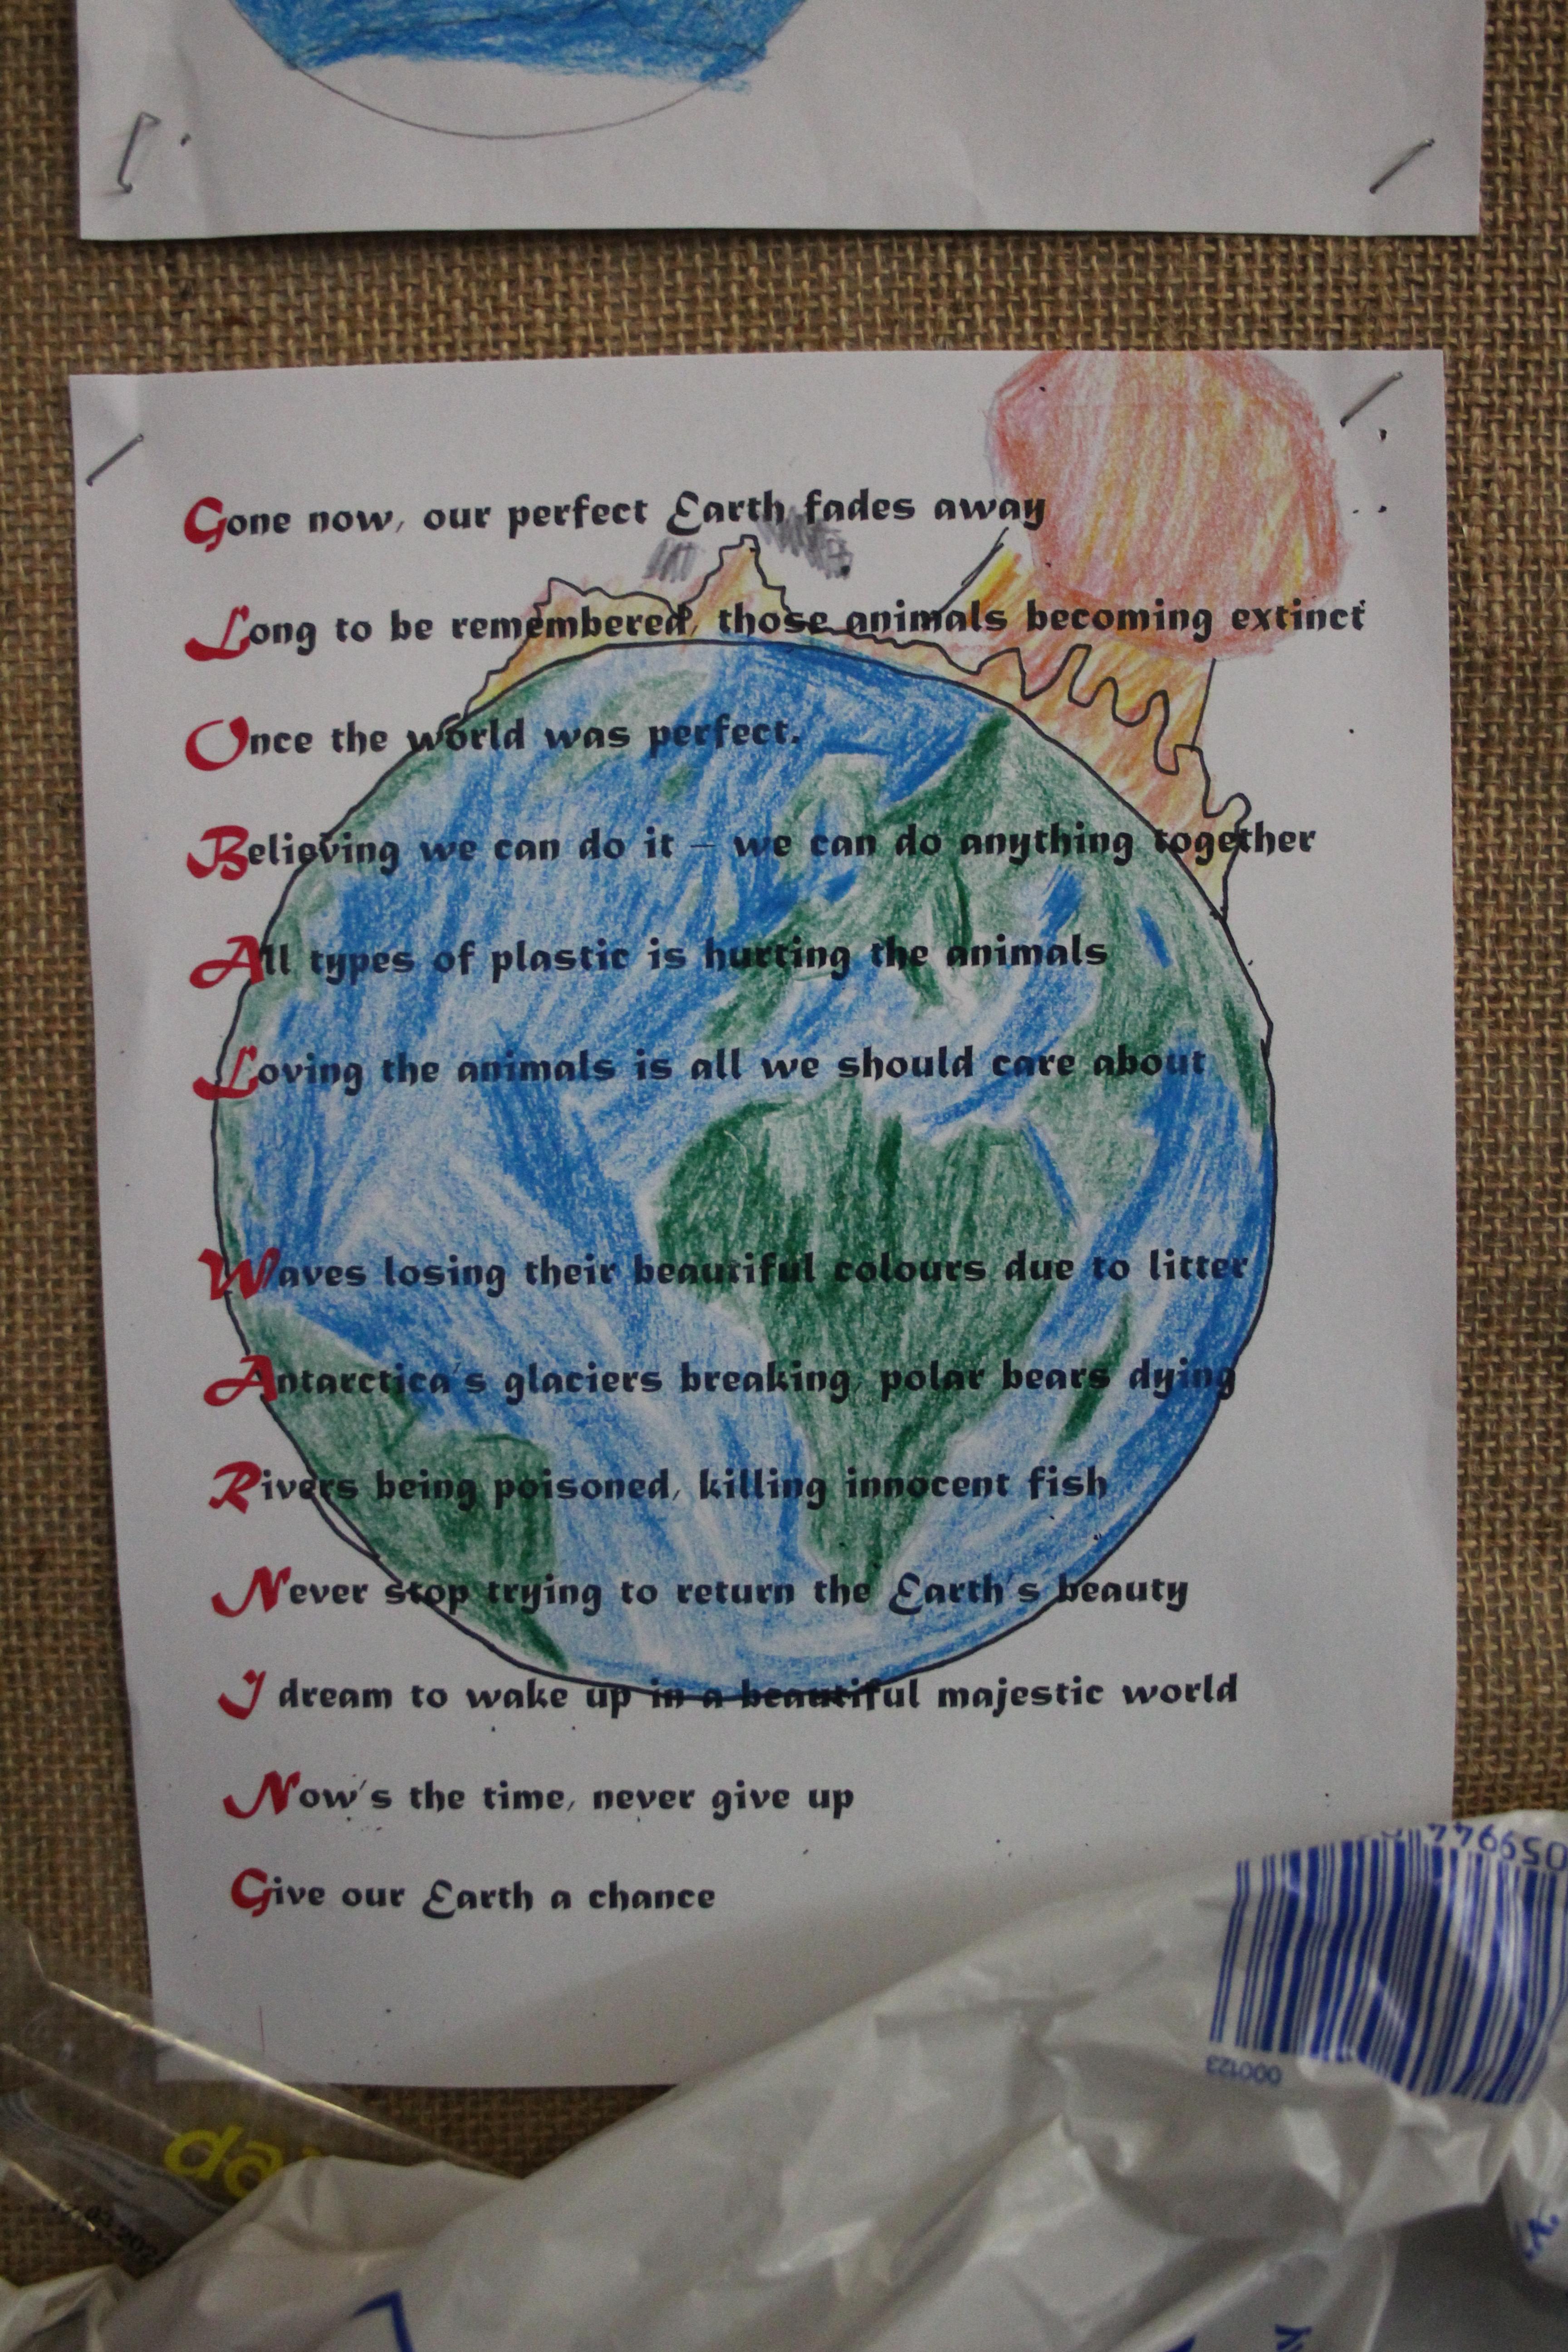 Gone now, our perfect Earth fades away
Long to be remembered, those animals becoming extinct
Once the world was perfect.
Believing we can do it – we can do anything together
All types of plastic is hurting the animals
Loving the animals is all we should care about
Waves losing their beautiful colours due to litter
Antarctica's glaciers breaking, polar bears dying
Rivers being poisoned, killing innocent fish
Never stop trying to return the Earth's beauty
I dream to wake up in a beautiful majestic world
Now's the time, never give up
Give our Earth a chance
000123